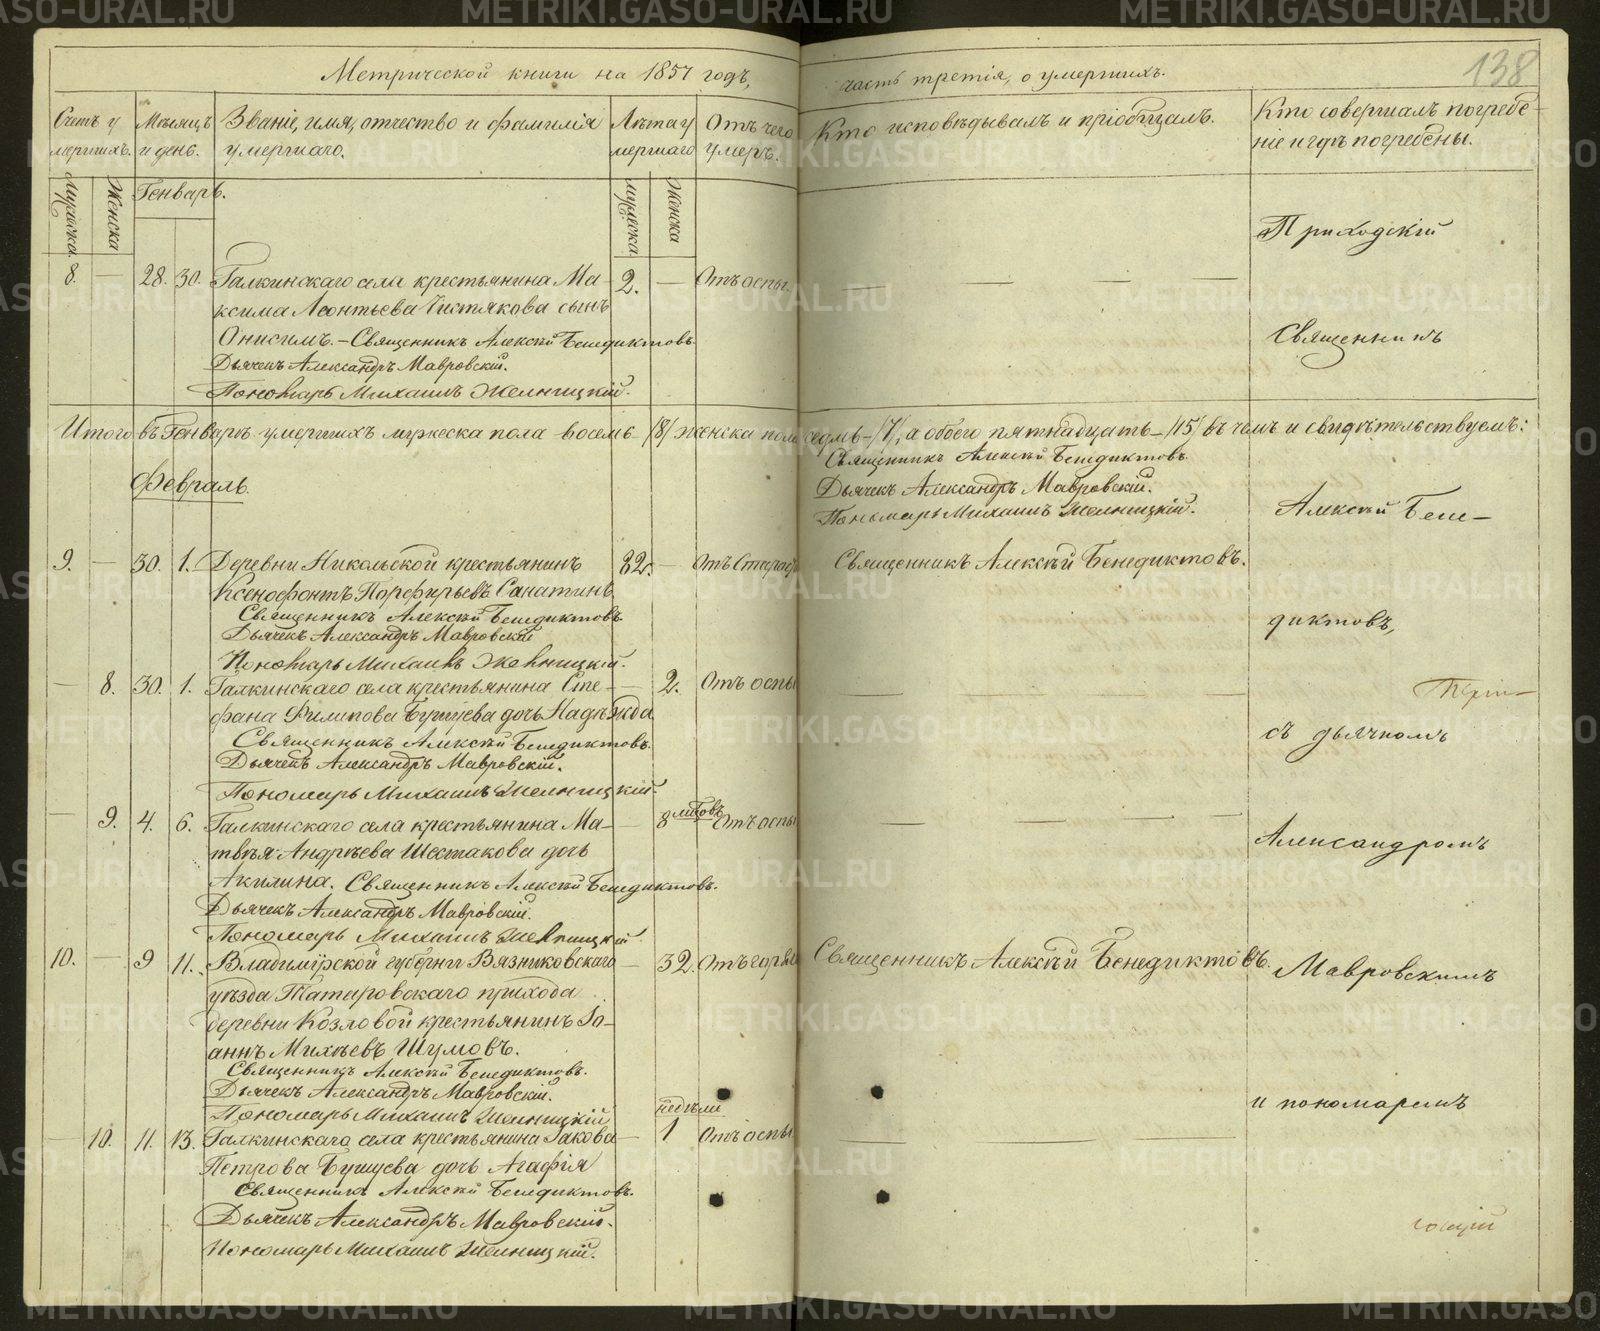 METRIKI.GASO-URAL.RU
138
Метрической книги на 1857 годъ, часть третія, о умершихъ.
Счетъ умершихъ.
Мужеска.
Женска
Мѣсяцъ и день.
Званіе, имя, отчество и фамилія умершаго.
Лѣта умершаго
мужеска
Женска
Отъ чего умеръ.
Кто исповѣдывалъ и пріобщалъ.
Кто совершалъ погребеніе и гдѣ погребены.
Генварь.
8. — 28. 30. Галкинскаго села крестьянина Ма- 2. — Отъ оспы.
ксима Леонтьева Чистякова сынъ
Онисимъ. – Священникъ Алексѣй Бенедиктовъ
Дьячекъ Александръ Мавровскій.
Пономарь Михаилъ Желницкій.
Итого въ Генварѣ умершихъ мужеска пола восемь /8/ женска пола седмь – /7/, а обоего пятнадцать – /15/ въ чемъ и свидѣтельствуемъ:
Священникъ Алексѣй Бенедиктовъ.
Дьячекъ Александръ Мавровскій.
Пономарь Михаилъ Желницкій.
Февраль.
9. — 30. 1. Деревни Никольской крестьянинъ 82. — Отъ Старост Священникъ Алексѣй Бенедиктовъ.
Ксенофонтъ Порфирьевъ Санатинъ
Священникъ Алексѣй Бенедиктовъ
Дьячекъ Александръ Мавровскій
Пономарь Михаилъ Желницкій.
— 8. 30. 1. Галкинскаго села крестьянина Сте- — 2. Отъ оспы
фана Филипова Бушуева дочь Надежда
Священникъ Алексѣй Бенедиктовъ.
Дьячекъ Александръ Мавровскій.
Пономарь Михаилъ Желницкій.
— 9. 4. 6. Галкинскаго села крестьянина Ма- — 8 мѣсяцовъ Отъ оспы
твѣя Андрѣева Шестакова дочь
Акилина. Священникъ Алексѣй Бенедиктовъ.
Дьячекъ Александръ Мавровскій.
Пономарь Михаилъ Желницкій
10. — 9 11. Владимірской губерніи Вязниковскаго — 32. Отъ горячки Священникъ Алексѣй Бенедиктовъ.
уѣзда Татаровскаго прихода
деревни Козловой крестьянинъ Іо-
аннъ Михѣевъ Шумовъ.
Священникъ Алексѣй Бенедиктовъ.
Дьячекъ Александръ Мавровскій.
Пономарь Михаилъ Желницкій
— 10. 11. 13. Галкинскаго села крестьянина Іакова — 1 недѣли Отъ оспы
Петрова Бушуева дочь Агафія
Священникъ Алексѣй Бенедиктовъ.
Дьячекъ Александръ Мавровскій.
Пономарь Михаилъ Желницкій.
Приходскій
Священникъ
Алексѣй Бене-
диктовъ,
съ дьячкомъ
Александромъ
Мавровскимъ
и пономаремъ